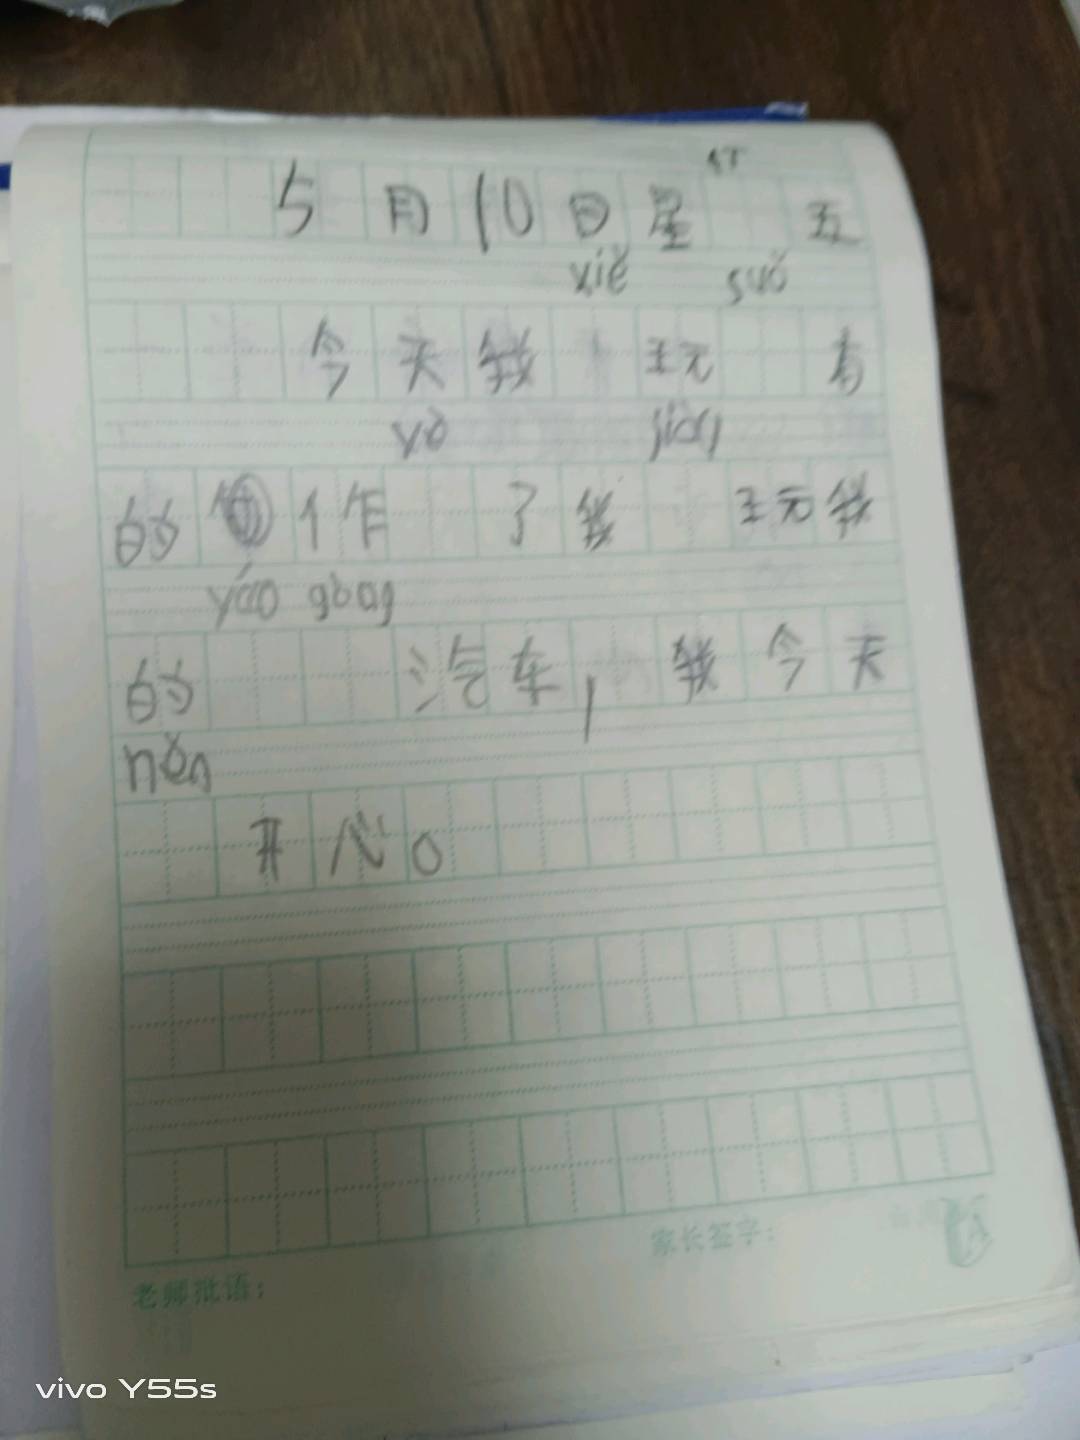 5月10日星 五
xiě suǒ
今天我 玩 有
yè jiàn
的作 了我 玩我
yáo gòng
的 汽车,我今天
hěn
开心。
家长签字:
老师批语:
vivo Y55s